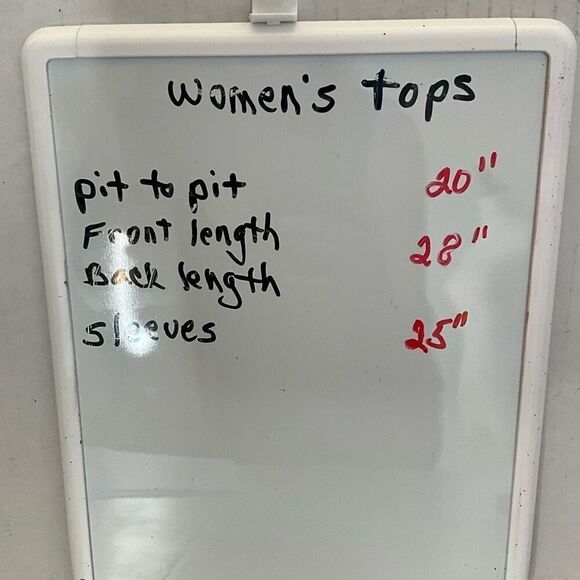 women's tops
pit to pit 20"
Front length 28"
Back length
sleeves 25"